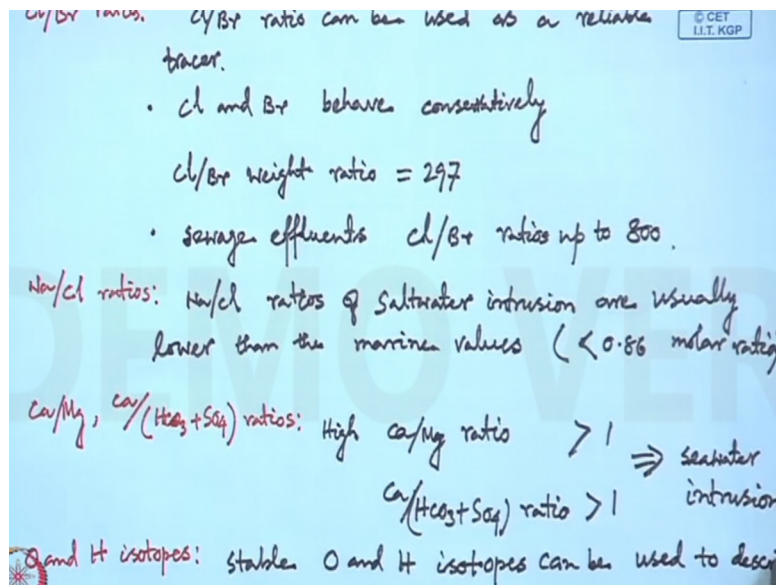 Cl/Br ratios: Cl/Br ratio can be used as a reliable
© CET
I.I.T. KGP
tracer.
• Cl and Br behaves conservatively
Cl/Br weight ratio = 297
• sewage effluents Cl/Br ratios up to 800.
Na/Cl ratios: Na/Cl ratios of saltwater intrusion are usually
lower than the marine values (<0.86 molar ratio
Ca/Mg, Ca/(HCO3+SO4) ratios: High Ca/Mg ratio >1
⇒ seawater
Ca/(HCO3+SO4) ratio >1 intrusion
O and H isotopes: stable O and H isotopes can be used to desc
DEMO VER